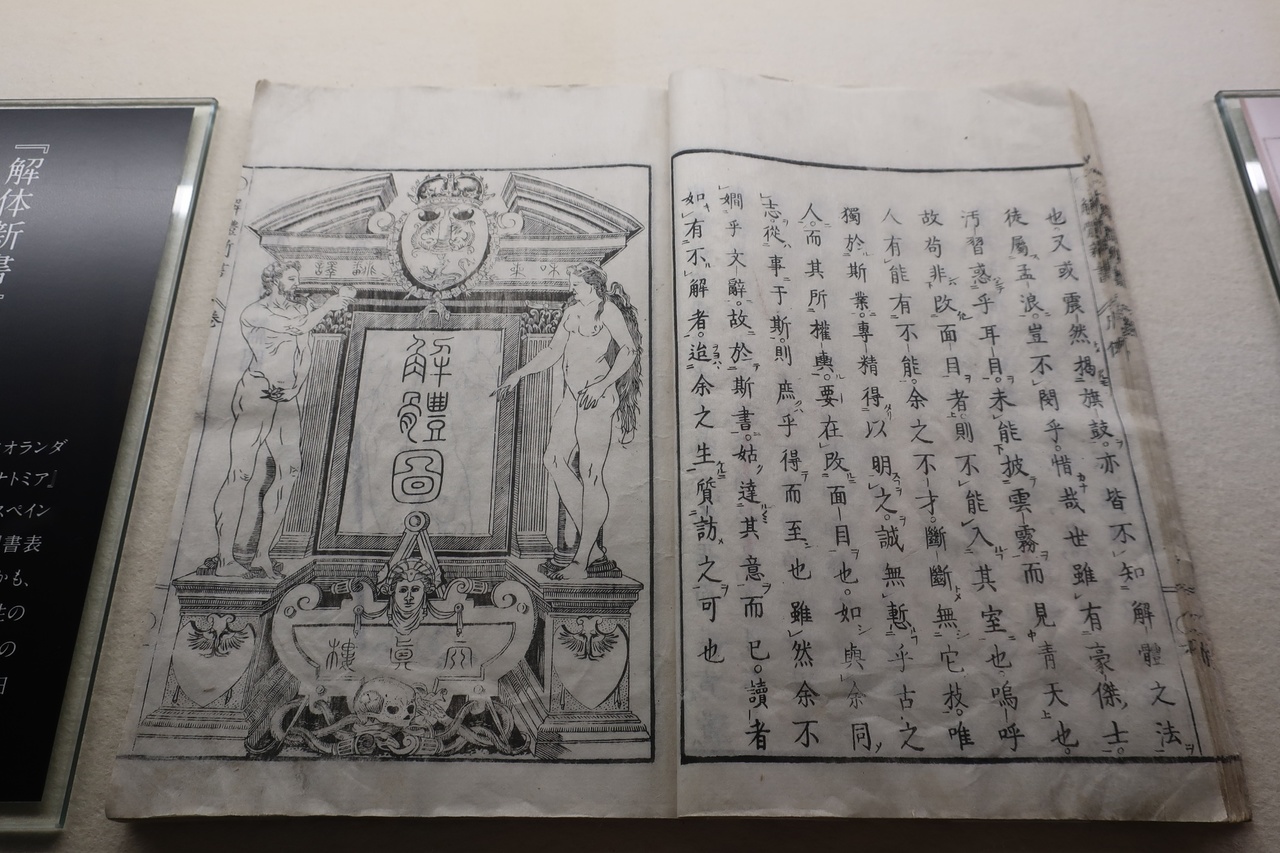 也又或震然揭旗鼓。亦皆不知解體之法
徒屬孟浪。豈不閔乎。惜哉世雖有豪傑士。
汚習惑乎耳目。未能披雲霧而見青天也。
故苟非改面目者則不能入其室也嗚呼
人有能有不能。余之不才。斷斷無它技。唯
獨於斯業。專精得以明之。誠無慙乎古之
人。而其所權輿。要在改面目也。如與余同
志。從事于斯。則庶乎得而至也雖然余不
嫺乎文辭。故於斯書。姑達其意而已。讀者
如有不解者。迨余之生質訪之可也
解體圖
天眞樓
解體新書
『解体新書』
オランダ
ナトミア』
スペイン
書表
かも、
の
日